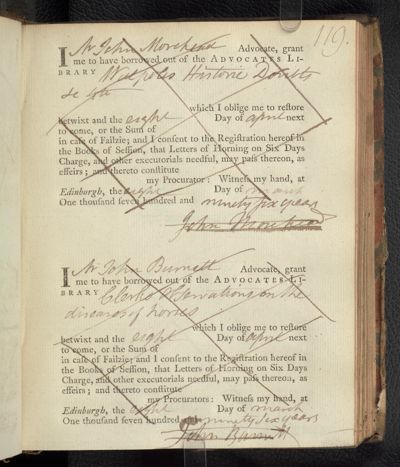 119.
I Mr John Morehead Advocate, grant
me to have borrowed out of the ADVOCATES LI-
BRARY Walpoles Historic Doubts
4to
which I oblige me to reſtore
betwixt and the eight Day of april next
to come, or the Sum of
in caſe of Failzie; and I conſent to the Regiſtration hereof in
the Books of Seſſion, that Letters of Horning on Six Days
Charge, and other executorials needful, may paſs thereon, as
effeirs; and thereto conſtitute
my Procurator: Witneſs my hand, at
Edinburgh, the eight Day of march
One thouſand ſeven hundred and ninety six years
John Morehead
I Mr John Burnett Advocate, grant
me to have borrowed out of the ADVOCATES LI-
BRARY Clerks Observations on the
diseases of horses
which I oblige me to reſtore
betwixt and the eight Day of april next
to come, or the Sum of
in caſe of Failzie; and I conſent to the Regiſtration hereof in
the Books of Seſſion, that Letters of Horning on Six Days
Charge, and other executorials needful, may paſs thereon, as
effeirs; and thereto conſtitute
my Procurators: Witneſs my hand, at
Edinburgh, the eight Day of march
One thouſand ſeven hundred and ninety six years
John Burnett